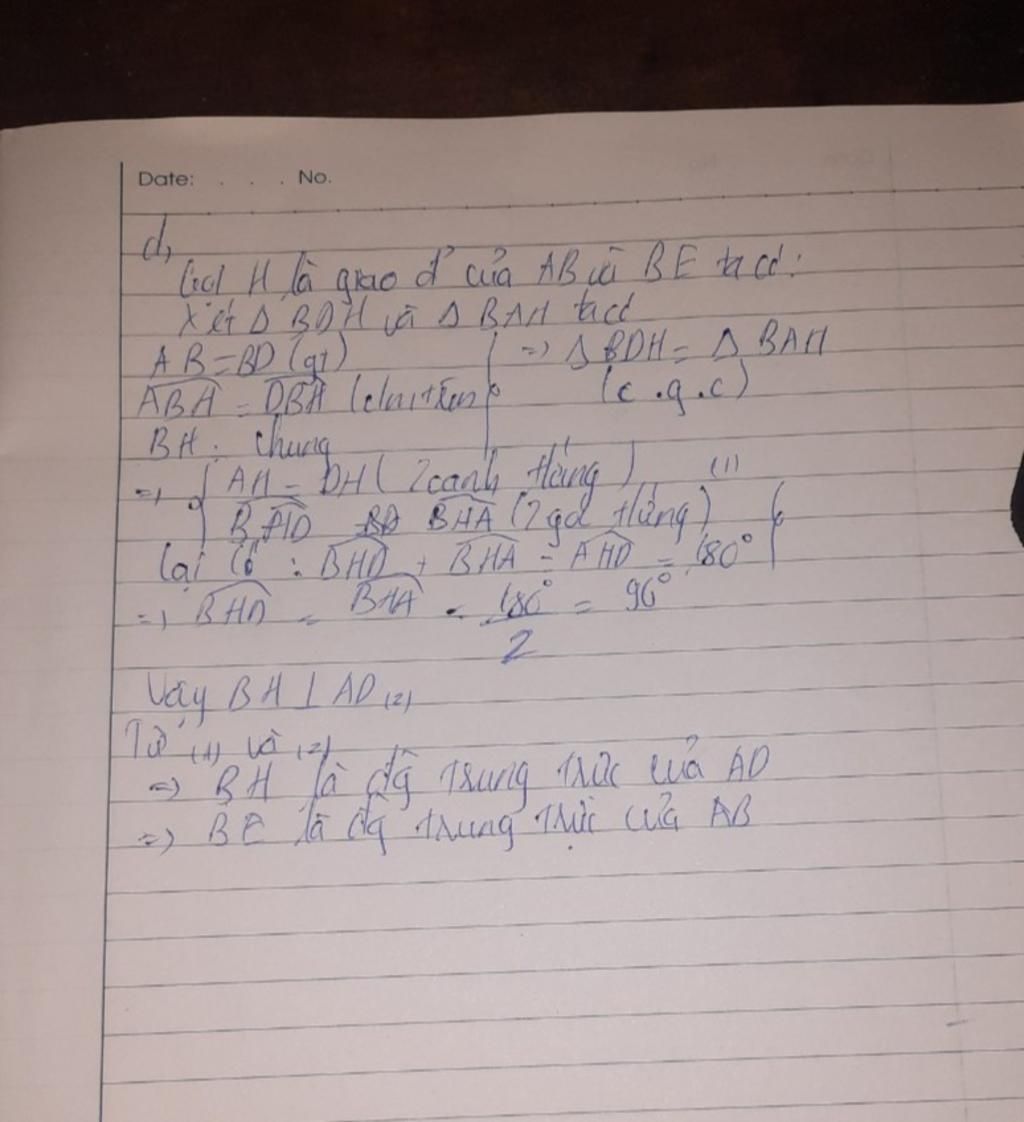 Date: . . . No.
d,
Gọi H là giao đ' của AB và BE ta có:
Xét Δ BDH và Δ BAH ta có
AB = BD (gt) => Δ BDH = Δ BAH
ABH = DBH (c/m trên) (c.g.c)
BH: chung
=> AH = DH (2 cạnh tứng) (1)
BHD BHA (2 góc tứng)
Lại có: BHD + BHA = AHD = 180°
=> BHD = BHA = 180° = 90°
2
Vậy BH ⊥ AD (2)
Từ (1) và (2)
=> BH là đg trung trực của AD
=> BE là đg trung trực của AB